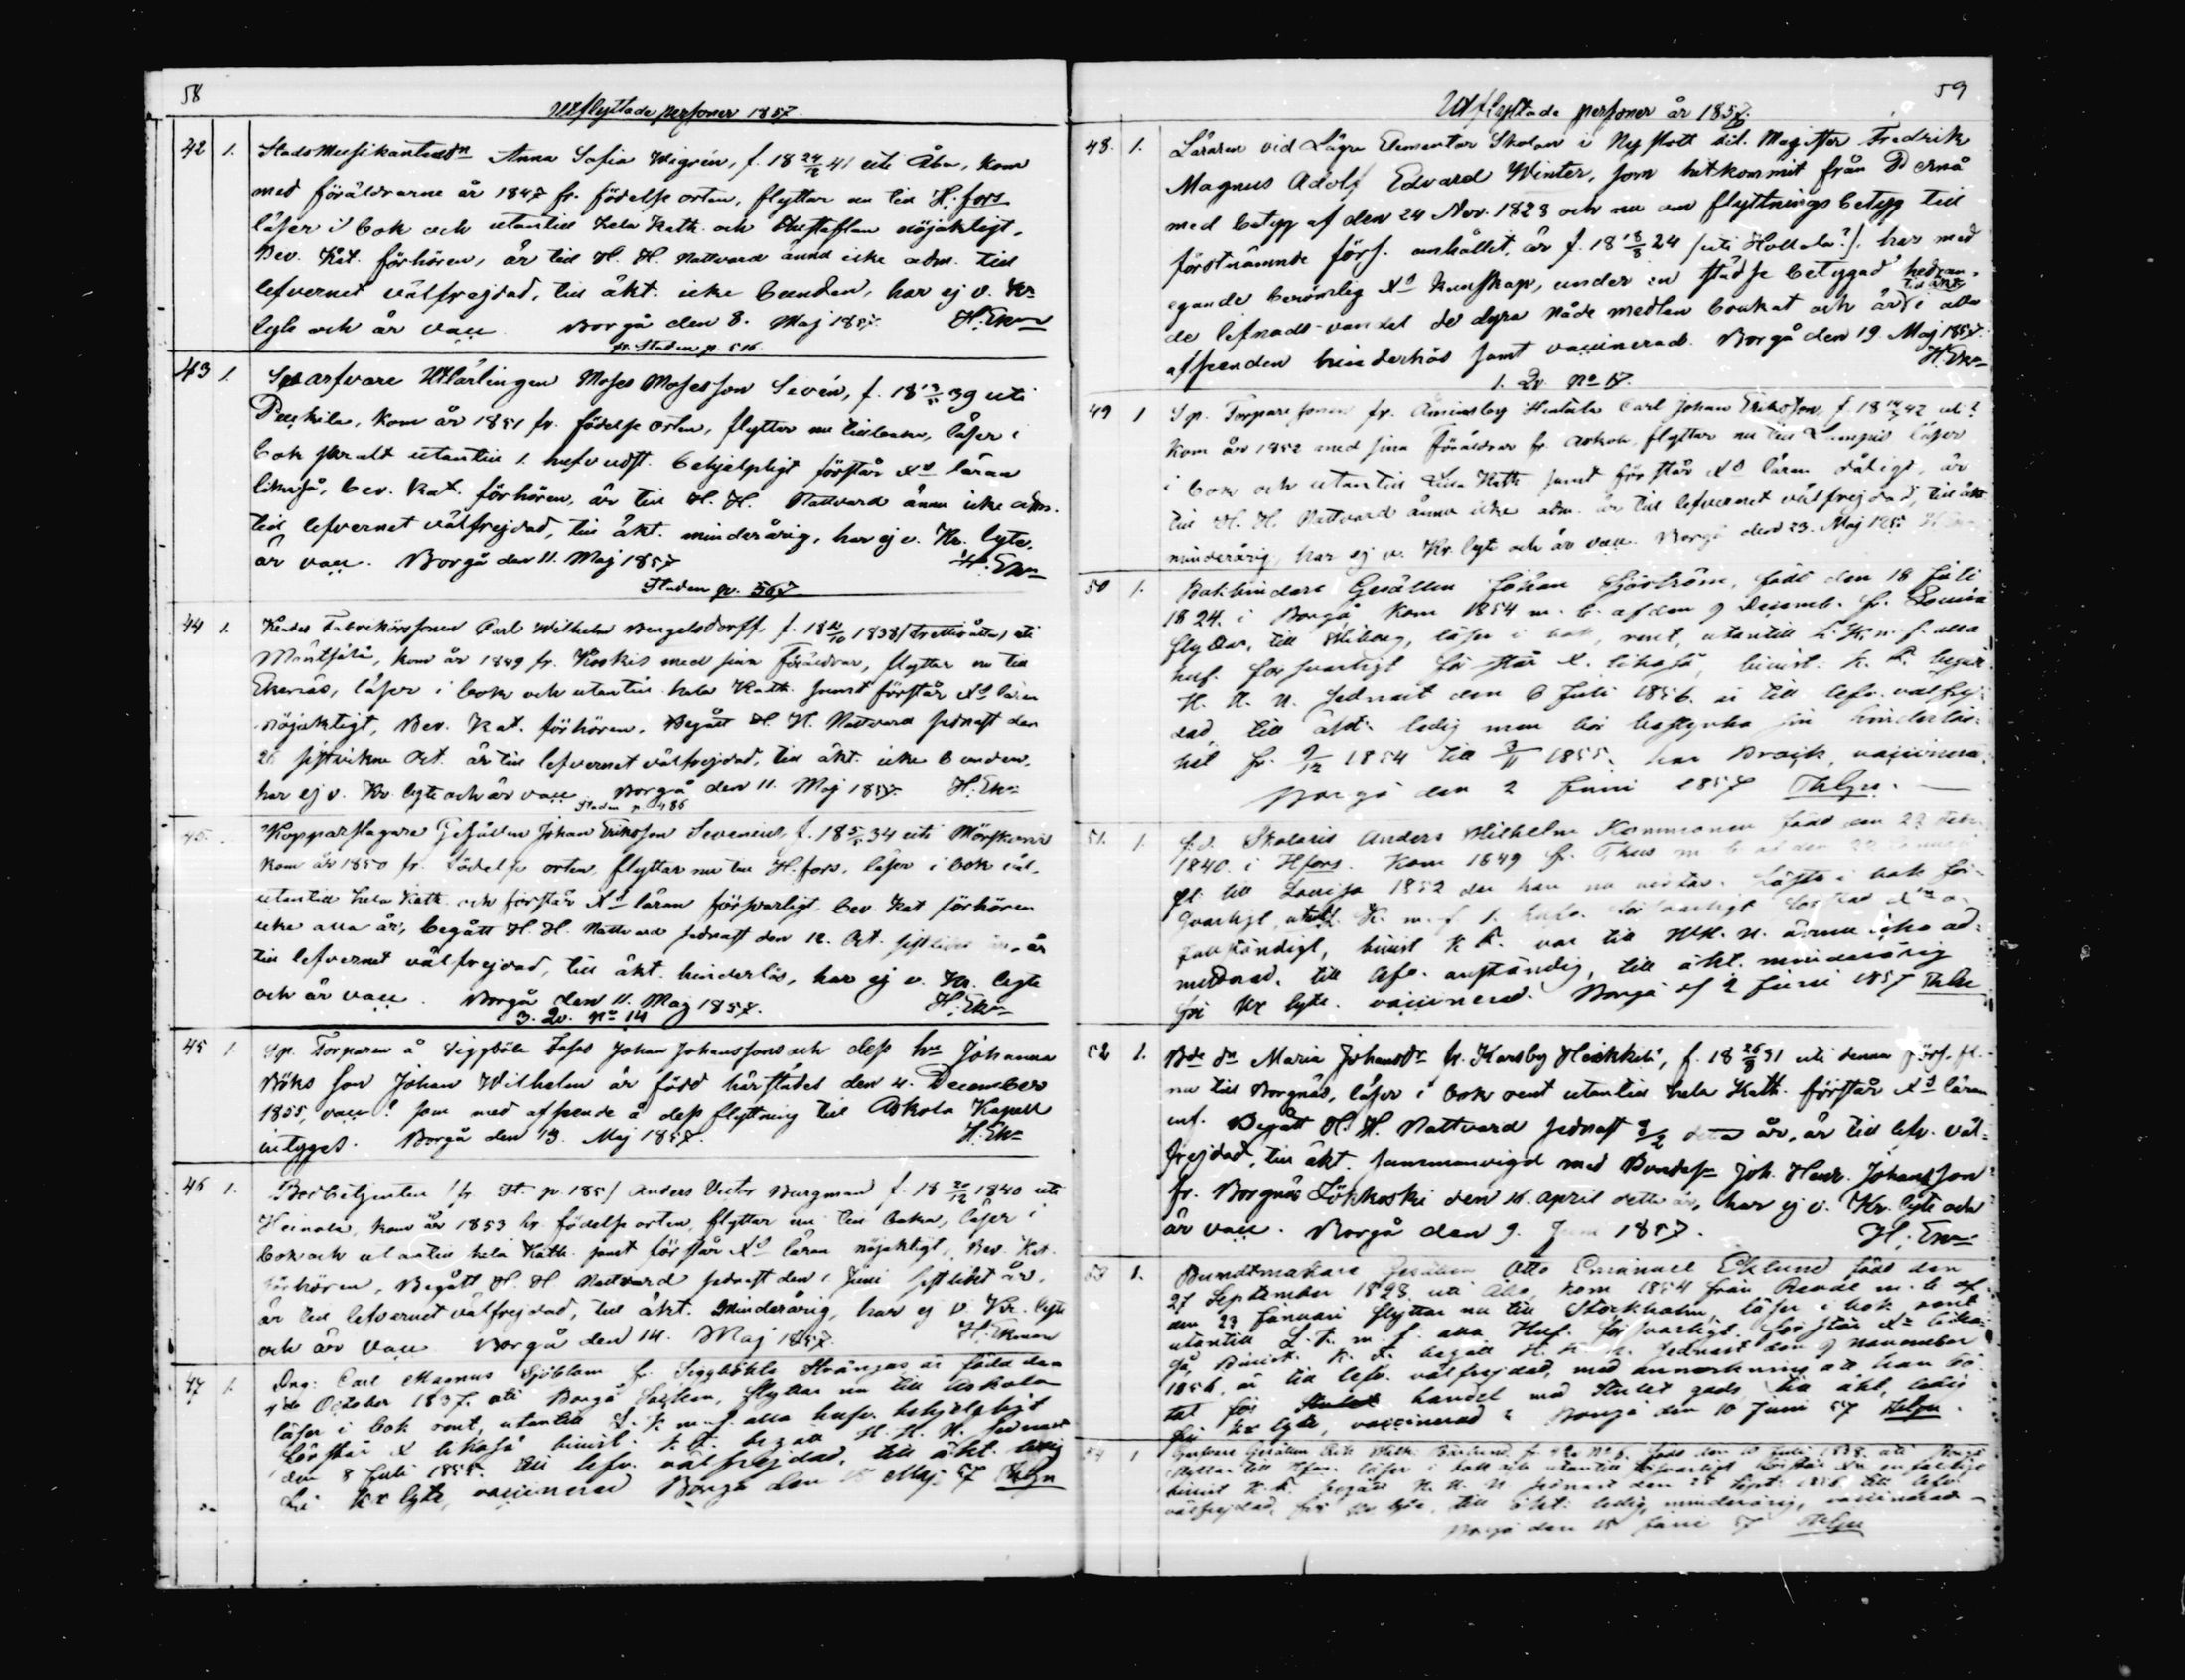 58
Utflyttade personer 1857.
42 1. Stads Musikantens dr Anna Sofia Wigrén, f. 18 24/12 41 uti Åbo, kom
med föräldrarne år 1847 fr. födelse orten, flyttar nu till H.fors
läser i bok och utantill hela Kath. och Hustaflan nöjaktigt,
Bev. Kat. förhören, är till H. H. Nattvard ännu icke adm. till
lefvernet välfrejdad, till äkt. icke bunden, har ej v. Kr.
lyte och är vacc. Borgå den 8. Maj 1857. H. Ekm
fr. Staden p. 516.
43 1. Garfvare Utlärlingen Moses Mosesson Sevén, f. 18 39 uti
kom år 1851 fr. födelse orten, flyttar nu tillbaka, läser i
bok utantill 1. hufvudst. behjelpligt förstår Xd läran
likaså, bev. Kat. förhören, är till H. H. Nattvard ännu icke adm.
till lefvernet välfrejdad, till äkt. minderårig, har ej v. Kr. lyte,
är vacc. Borgå den 11. Maj 1857 H. Ekm
Staden p. 567
44 1. Carl Wilhelm Bengelsdorff, f. 18 /10 1838 /trettioåtta/ uti
Mäntsälä, kom år 1849 fr. Koskis med sina Föräldrar, flyttar nu till
Ekenäs, läser i bok och utantill hela Kath. samt förstår Xd läran
nöjaktigt, Bev. Kat. förhören. Begått H. H. Nattvard sednast den
sistvikne Oct. är till lefvernet välfrejdad, till äkt. icke bunden,
har ej v. Kr. lyte och är vacc. Borgå den 11. Maj 1857. H. Ekm
Staden p. 486
45. Kopparslagare Gesällen Johan Eriksson Sevenius, f. 18 5/ 34 uti Mörskom
kom år 1850 fr. födelse orten, flyttar nu till H.fors, läser i bok väl,
utantill hela Kath. och förstår Xd läran försvarligt, bev. Kat förhören
icke alla år, begått H. H. Nattvard sednast den 12. Oct. sistlidet år, är
till lefvernet välfrejdad, till äkt. hinderlös, har ej v. Kr. lyte
och är vacc. Borgå den 11. Maj 1857. H. Ekm
3. Qv. No 14
45 1. Sp. Torparen å Siggböle Johan Johanssons och dess hu Johanna
Böks son Johan Wilhelm är född härstädes den 4. December
1855, vacc? som med afseende å dess flyttning till Askola Kapell
intygas. Borgå den 13. Maj 1857. H. Ekm
46 1. Betjenten /fr. St. p. 185/ Anders Victor Burgman f. 18 20/12 1840 uti
Heinola, kom år 1853 fr. födelse orten, flyttar nu till baka, läser i
bok och utantill hela Kath. samt förstår Xd läran nöjaktigt, Bev. Kat.
förhören, Begått H. H. Nattvard sednast den 1. Juni sistlidet år,
är till lefvernet välfrejdad, till äkt. minderårig, har ej v. Kr. lyte
och är vacc. Borgå den 14. Maj 1857. H. Ekman
47 1. Drg: Carl Magnus Sjöblom fr. Siggböhle Strängas är född den
4de October 1837. uti Borgå Socken, flyttar nu till Askola
läser i bok rent, utantill L. K. m. f. alla hufv. behjelpligt
förstår X likaså bivist. K. F. begått H. H. N. sednast
den 8 Juli 1855. till lefv. välfrejdad, till äkt. ledig
fri Kr lyte, vaccinerad Borgå den Maj 57
59
Utflyttade personer år 1857.
48. 1. Läraren vid Lägre Elementar Skolan i Nyslott tit. Magister Fredrik
Magnus Adolf Edvard Winter, som hitkommit från Pernå
med betyg af den 24 Nov. 1828 och nu om flyttningsbetyg till
förstnämnde förs. anhållit, är f. 18 18/8 24 /uti Hollola?/, har med
egande berömlig Xd kunskap, under en städse betygad hedran-
de lefnads-vandel de dyra nåde medlen brukat och är till äkt. i alla
afseenden hinderlös samt vaccinerad. Borgå den 19. Maj 1857.
H. Ekm
1. Qv. No 17.
49 1 Sp. Torpare sonen fr. Hintala Carl Johan Eriksson, f. 18 42 uti?
kom år 1852 med sina Föräldrar fr. Askola, flyttar nu till läser
i bok och utantill Lilla Kath. samt förstår Xd läran dåligt, är
till H. H. Nattvard ännu icke adm. är till lefvernet välfrejdad, till äkt
minderårig, har ej v. Kr. lyte och är vacc. Borgå den 23. Maj 1857
50 1. Bokbindare Gesällen Johan Sjöström, född den 18 Juli
1824. i Borgå, kom 1854 m. b. af den 9 Decemb. fr. Lovisa
flyttar, till Wiborg, läser i bok, rent, utantill L. K. m. f. alla
huf. försvarligt förstår X. likaså, bivist. K. F. begått.
H. H. N. sednast den 6 Juli 1856. är till lefv. välfrej-
dad, till äkt. ledig men bör bestyrka sin hinderlös-
het fr. 9/12 1854 till 1855. har Bråck, vaccinera.
Borgå den 2 Juni 1857
51. 1. f.d. Skolaris Anders Wilhelm Kommonen född den 23
1840. i Hfors. Kom 1849 fr.
fl. till Lovisa 1852 der han nu vistas. Läste i bok för-
svarligt, utantill L. K. m. f. 1. hufv. försvarligt
fullständigt, bivist K F. var till HH. N. ännu icke ad-
mitterad, till lefv. anständig, till äkt. minderårig
fri Kr lyte, vaccinerad. Borgå d 2 Juni 1857
52 1. Bde dr Maria Johansdr fr. Karsby Heikkilä, f. 18 26/8 31 uti denna förs. fl.
nu till Borgnäs, läser i bok rent utantill hela Kath. förstår Xd läran
enf. Begått H. H. Nattvard sednast 8/2 detta år, är till lefv. väl-
frejdad, till äkt. sammanvigd med Bondesn Joh. Henr. Johansson
fr. Borgnäs Lökkoski den 16. April detta år, har ej v. Kr. lyte och
är vacc. Borgå den 9. Juni 1857. H. Ekm
53 1. Bundtmakare Gesällen Otto Emanuel Eklund född den
27 September 1828. uti Åbo, kom 1854 från Reval m. b. af
den 23 Januari flyttar nu till Stockholm, läser i bok rent
utantill L. K. m. f. alla Huf. försvarligt. förstår Xd lika-
så, Bivist. K. F. begått H. H. N. sednast den 9 november
1856, är till lefv. välfrejdad, med anmärkning att han bö-
tat för handel med stulet gods, till äkt. ledig
fri Kr lyte, vaccinerad. Borgå den 10 Juni 57
54 1 Garfvare Gesällen född den 10 Juli 1838. uti Borgå
flyttar till Hfors. läser i bok och utantill försvarligt förstår
bivist K. F. begått H. H. N sednast den 28 Sept. 1856. till lefv.
välfrejdad, fri Kr lyte, till äkt. ledig, minderårig, vaccinerad
Borgå den 15 Juni 57